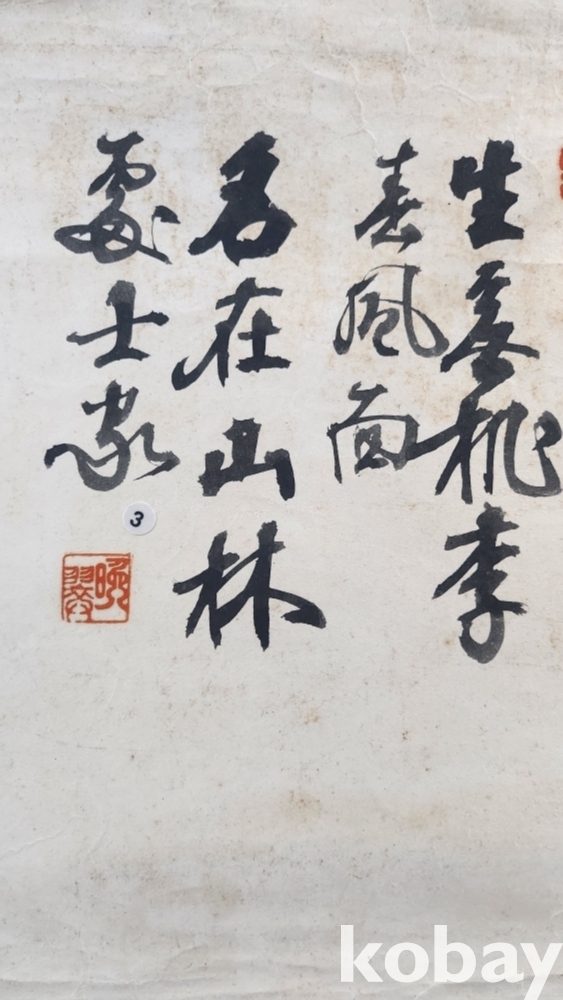 生無桃李
春風面
名在山林
處士家
3
晩翠
kobay